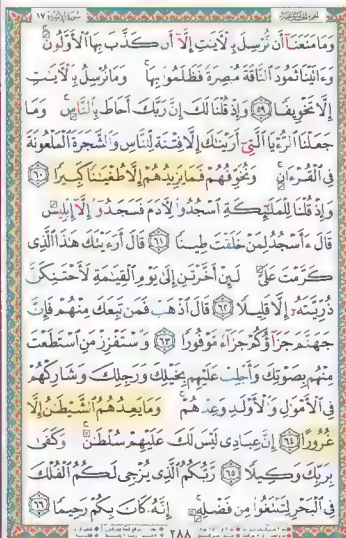 وَمَا مَنَعَنَآ أَن نُّرْسِلَ بِٱلْءَايَٰتِ إِلَّآ أَن كَذَّبَ بِهَا ٱلْأَوَّلُونَ ۚ
وَءَاتَيْنَا ثَمُودَ ٱلنَّاقَةَ مُبْصِرَةً فَظَلَمُوا۟ بِهَا ۚ وَمَا نُرْسِلُ بِٱلْءَايَٰتِ
إِلَّا تَخْوِيفًا ٥٩ وَإِذْ قُلْنَا لَكَ إِنَّ رَبَّكَ أَحَاطَ بِٱلنَّاسِ ۚ وَمَا
جَعَلْنَا ٱلرُّءْيَا ٱلَّتِىٓ أَرَيْنَٰكَ إِلَّا فِتْنَةً لِّلنَّاسِ وَٱلشَّجَرَةَ ٱلْمَلْعُونَةَ
فِى ٱلْقُرْءَانِ ۚ وَنُخَوِّفُهُمْ فَمَا يَزِيدُهُمْ إِلَّا طُغْيَٰنًا كَبِيرًا ٦٠
وَإِذْ قُلْنَا لِلْمَلَٰٓئِكَةِ ٱسْجُدُوا۟ لِءَادَمَ فَسَجَدُوٓا۟ إِلَّآ إِبْلِيسَ
قَالَ ءَأَسْجُدُ لِمَنْ خَلَقْتَ طِينًا ٦١ قَالَ أَرَءَيْتَكَ هَٰذَا ٱلَّذِى
كَرَّمْتَ عَلَىَّ لَئِنْ أَخَّرْتَنِ إِلَىٰ يَوْمِ ٱلْقِيَٰمَةِ لَأَحْتَنِكَنَّ
ذُرِّيَّتَهُۥٓ إِلَّا قَلِيلًا ٦٢ قَالَ ٱذْهَبْ فَمَن تَبِعَكَ مِنْهُمْ فَإِنَّ
جَهَنَّمَ جَزَآؤُكُمْ جَزَآءً مَّوْفُورًا ٦٣ وَٱسْتَفْزِزْ مَنِ ٱسْتَطَعْتَ
مِنْهُم بِصَوْتِكَ وَأَجْلِبْ عَلَيْهِم بِخَيْلِكَ وَرَجِلِكَ وَشَارِكْهُمْ
فِى ٱلْأَمْوَٰلِ وَٱلْأَوْلَٰدِ وَعِدْهُمْ ۚ وَمَا يَعِدُهُمُ ٱلشَّيْطَٰنُ إِلَّا
غُرُورًا ٦٤ إِنَّ عِبَادِى لَيْسَ لَكَ عَلَيْهِمْ سُلْطَٰنٌ ۚ وَكَفَىٰ
بِرَبِّكَ وَكِيلًا ٦٥ رَّبُّكُمُ ٱلَّذِى يُزْجِى لَكُمُ ٱلْفُلْكَ
فِى ٱلْبَحْرِ لِتَبْتَغُوا۟ مِن فَضْلِهِۦٓ ۚ إِنَّهُۥ كَانَ بِكُمْ رَحِيمًا ٦٦
٢٨٨